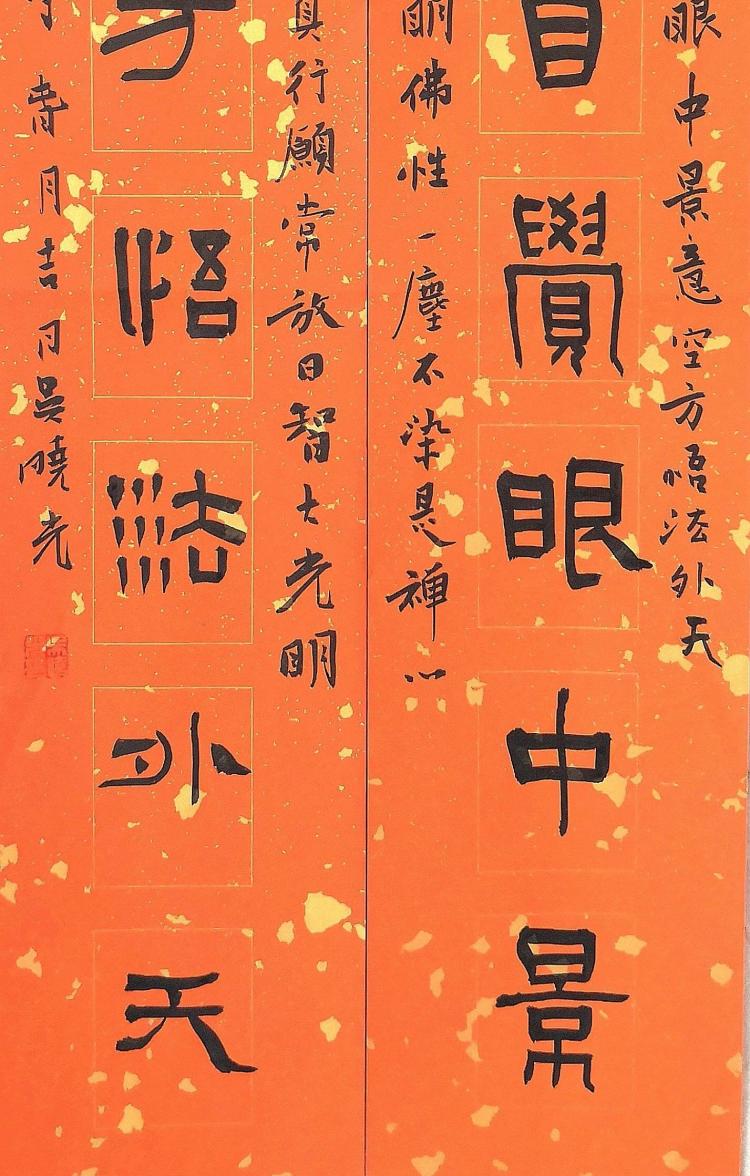 眼中景意空方悟法外天
自覺眼中景
明佛性一塵不染是禪心
真行願常放日智大光明
方悟法外天
春月吉日吴曉光